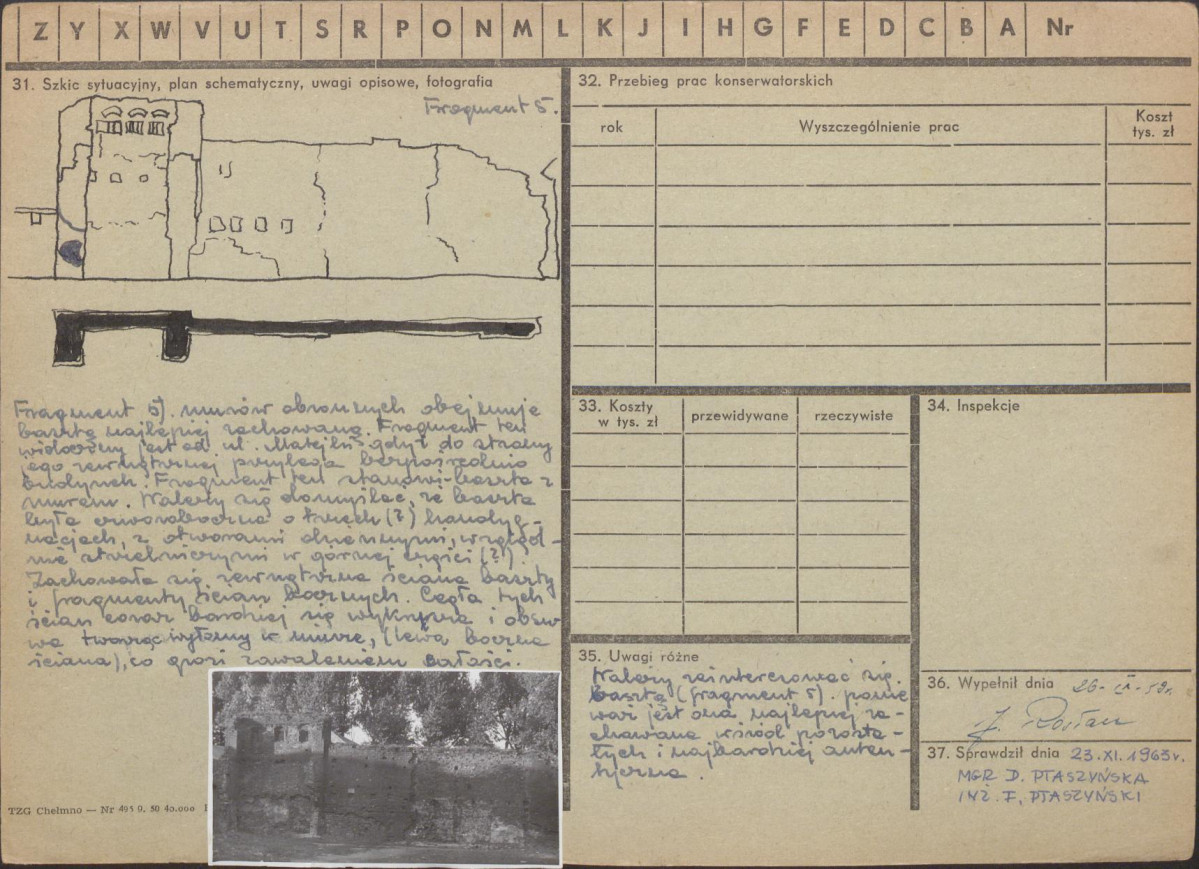 Z Y X W V U T S R P O N M L K J I H G F E D C B A Nr
31. Szkic sytuacyjny, plan schematyczny, uwagi opisowe, fotografia
Fragment 5.
Fragment 5). murów obronnych obejmuje
basztę najlepiej zachowaną. Fragment ten
widoczny jest od ul. Matejki gdyż do strony
jego zewnętrznej przylega bezpośrednio
budynek. Fragment ten stanowi - baszta z
murem. Należy się domyślać, że baszta
była czworoboczna o trzech (?) kondyg-
nacjach, z otworami dziennymi, względ-
nie strzelniczymi w górnej części (?).
Zachowała się zewnętrzna ściana baszty
i fragmenty ścian bocznych. Cegła tych
ścian coraz bardziej się wykrusza i obsu
wa tworząc wyłomy w murze, (lewa boczna
ściana), co grozi zawaleniem całości.
TZG Chełmno — Nr 495 9. 50 40.000
32. Przebieg prac konserwatorskich
rok Wyszczególnienie prac Koszt
tys. zł
33. Koszty
w tys. zł przewidywane rzeczywiste
34. Inspekcje
35. Uwagi różne
Należy zainteresować się
basztą (fragment 5). ponie
waż jest ona najlepiej za-
chowana wśród pozosta-
łych i najbardziej auten-
tyczna.
36. Wypełnił dnia 26- IX - 59r.
37. Sprawdził dnia 23. XI. 1963r.
MGR D. PTASZYŃSKA
INŻ. F. PTASZYŃSKI